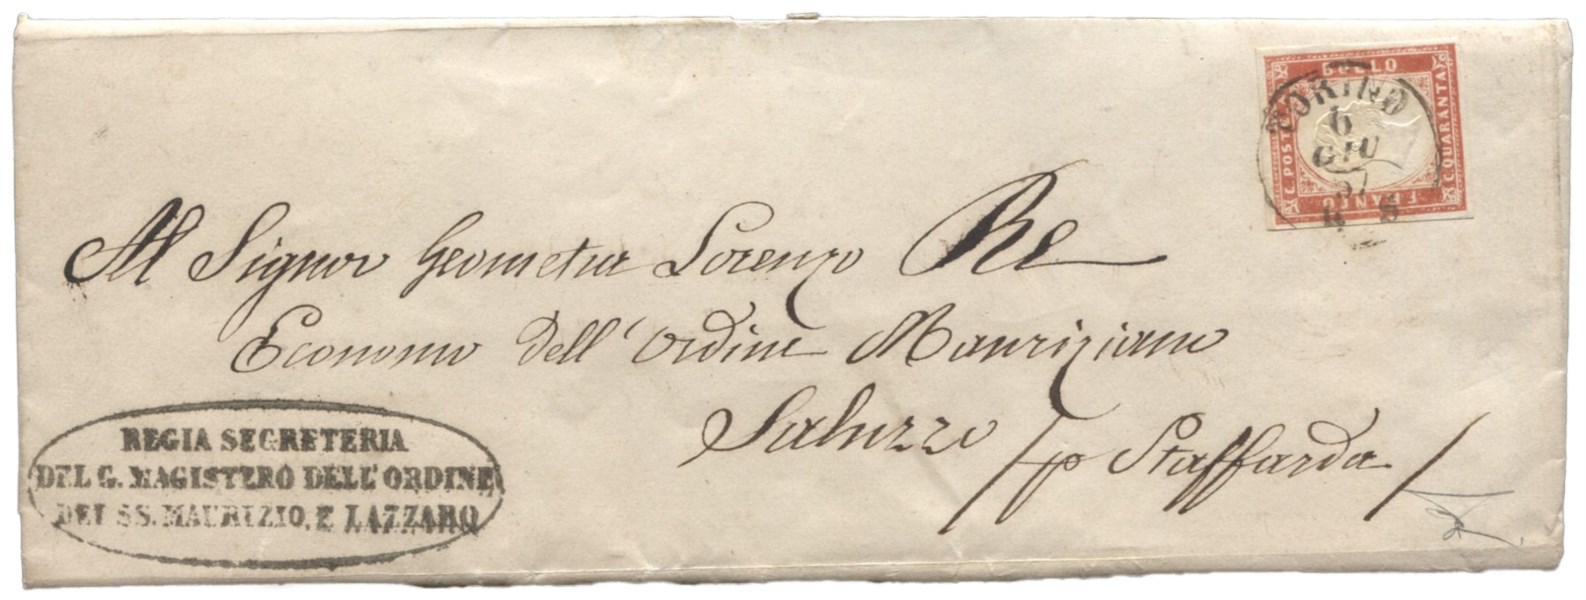 BOLLO
C. POSTE
C. QUARANTA
FRANCO
TORINO
6
GIU
57
Al Signor Geometra Lorenzo Re
Economo dell'Ordine Mauriziano
Saluzzo /p Staffarda/
REGIA SEGRETERIA
DEL G. MAGISTERO DELL'ORDINE
DEI SS. MAURIZIO, E LAZZARO